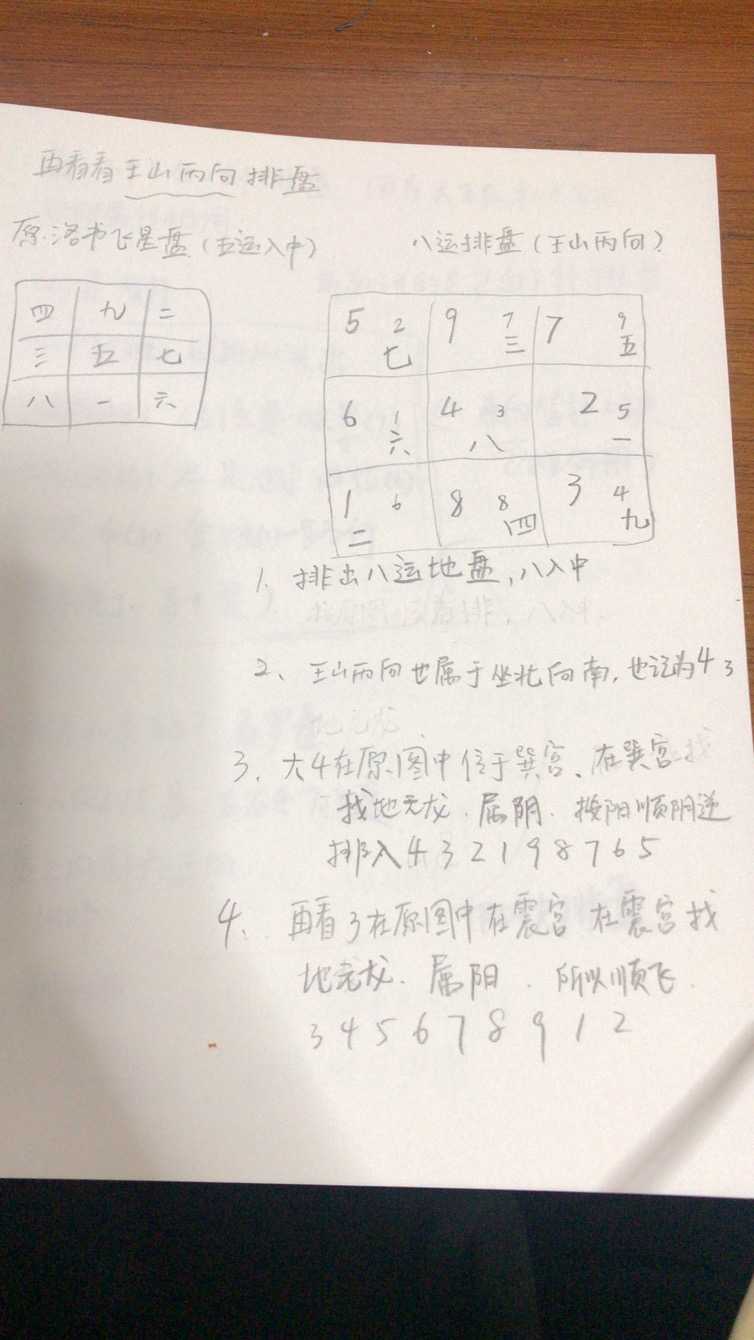 再看看壬山丙向排盘
原洛书飞星盘（五运入中）
八运排盘（壬山丙向）
四 九 二
三 五 七
八 一 六
5 2 9 7 7 9
七 三 五
6 1 4 3 2 5
六 八 一
1 6 8 8 3 4
二 四 九
1. 排出八运地盘，八入中
2、壬山丙向也属于坐北向南，也记为4 3
3. 大4在原图中位于巽宫、在巽宫
找地元龙．属阴．按阳顺阴逆
排入4 3 2 1 9 8 7 6 5
4. 再看3在原图中在震宫 在震宫找
地元龙．属阳．所以顺飞．
3 4 5 6 7 8 9 1 2